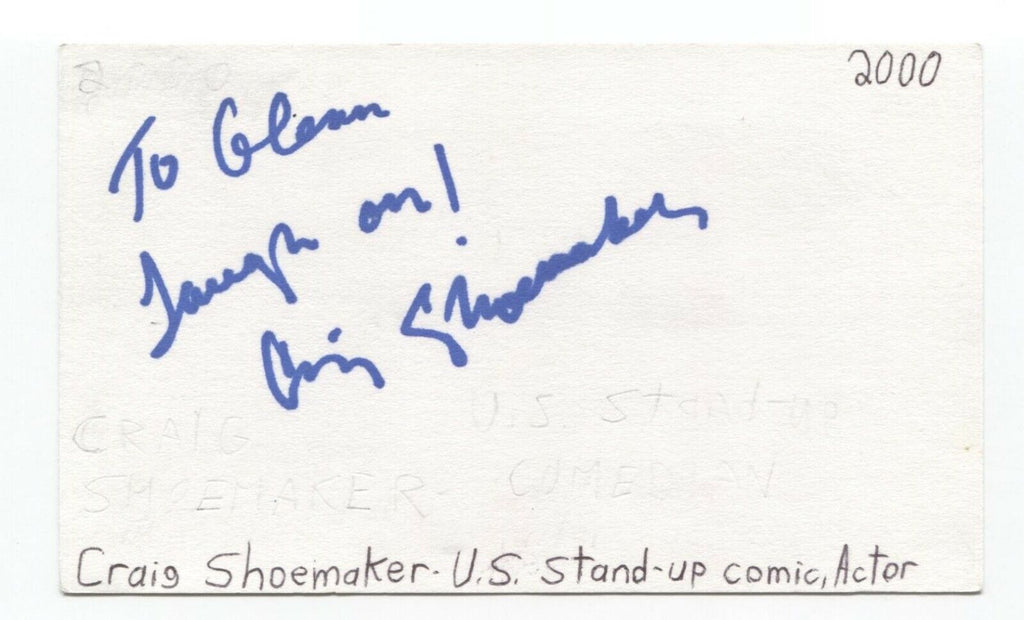 2000
2000
To Glenn
Laugh on!
Craig Shoemaker
CRAIG
U.S. Stand-up
SHOEMAKER-
COMEDIAN
Craig Shoemaker- U.S. Stand-up comic, Actor